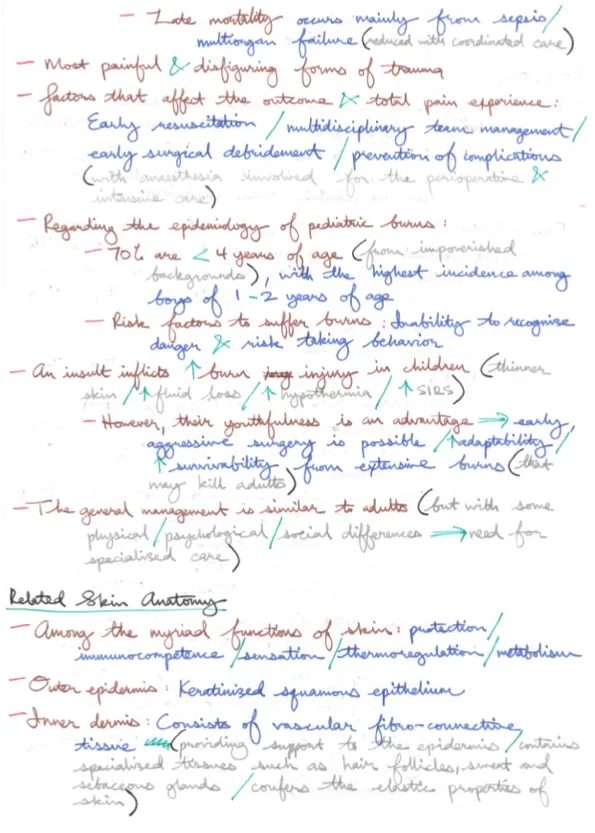 – Late mortality occurs mainly from sepsis/
multiorgan failure (reduced with coordinated care)
– Most painful & disfiguring forms of trauma
– Factors that affect the outcome & total pain experience:
Early resuscitation / multidisciplinary team management/
early surgical debridement / prevention of complications
(with anaesthesia involved for the perioperative &
intensive care)
– Regarding the epidemiology of pediatric burns:
– 70% are < 4 years of age (from impoverished
backgrounds), with the highest incidence among
boys of 1-2 years of age
– Risk factors to suffer burns: Inability to recognise
danger & risk taking behavior
– An insult inflicts ↑ burn injury in children (thinner
skin / ↑ fluid loss / ↑ hypothermia / ↑ SIRS)
– However, their youthfulness is an advantage → early,
aggressive surgery is possible / ↑ adaptability/
↑ survivability from extensive burns (that
may kill adults)
– The general management is similar to adults (but with some
physical/psychological/social differences → need for
specialized care)
Related Skin Anatomy
– Among the myriad functions of skin: protection/
immunocompetence/sensation/thermoregulation/metabolism
– Outer epidermis: Keratinized squamous epithelium
– Inner dermis: Consists of vascular fibro-connective
tissue (providing support to the epidermis/contains
specialized tissues such as hair follicles, sweat and
sebaceous glands / confers the elastic properties of
skin)